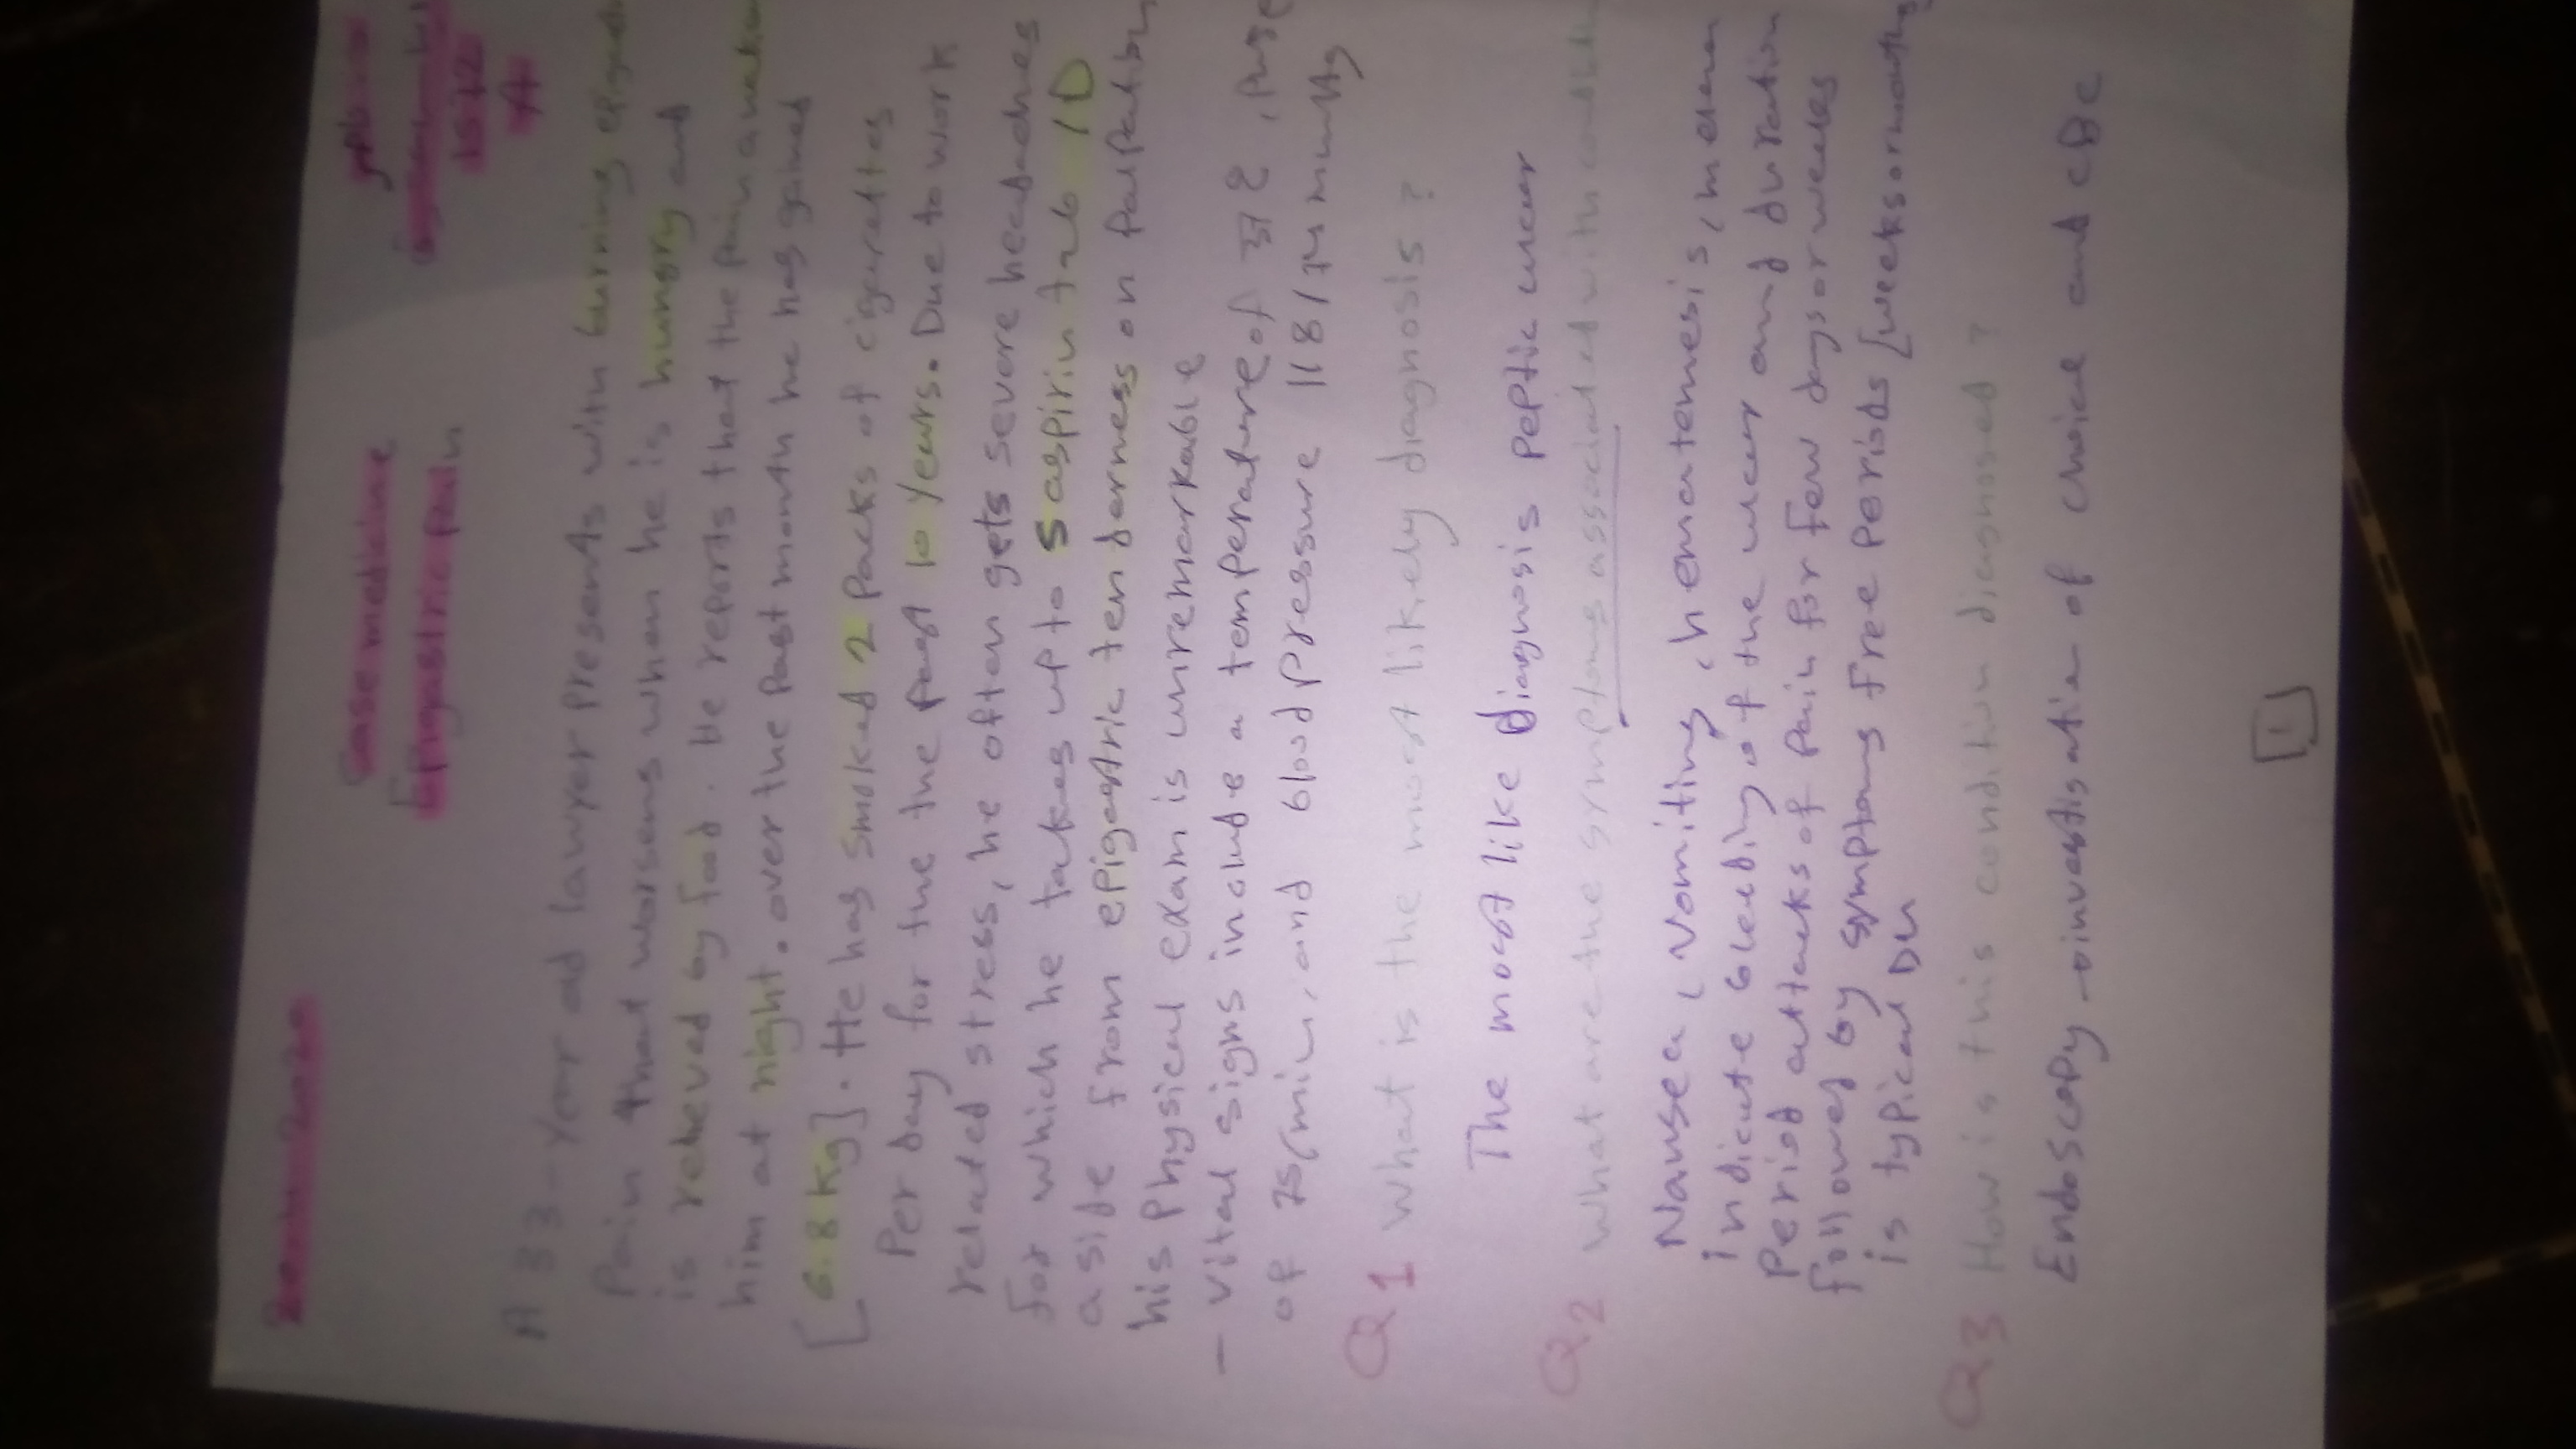 Case medicine
Epigastric pain
A 33-Year old lawyer presents with burning
Pain that worsens when he is hungry and
is relieved by food. He reports that the pain
him at night. over the Past month he has gained
[6.8 kg]. He has smoked 2 Packs of cigarettes
Per day for the the past 10 years. Due to work
related stress, he often gets severe headaches
for which he takes up to 5 aspirin /D
aside from epigastric tenderness on Palpation
his Physical exam is unremarkable
- vital signs include a temperature of
of 75/min, and blood Pressure 118/74 mmHg
Q1 What is the most likely diagnosis?
The most like Diagnosis Peptic ulcer
Q2 What are the symptoms associated with
Nausea, Vomiting, hematemesis,
indicate bleeding of the ulcer and duration
Period attacks of Pain for few days or weeks
followed by symptoms free Periods [weeks or
is typical DU
Q3 How is this condition diagnosed?
Endoscopy → investigation of choice and CBC
[1]